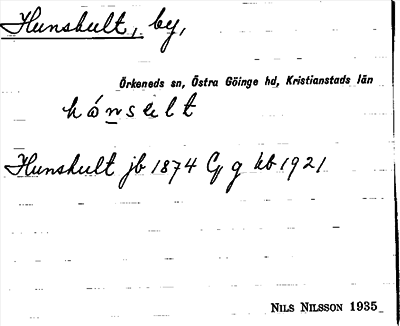 Hunshult, by,
Örkeneds sn, Östra Göinge hd, Kristianstads län
Hunshult jb 1874 g kb 1921
NILS NILSSON 1935